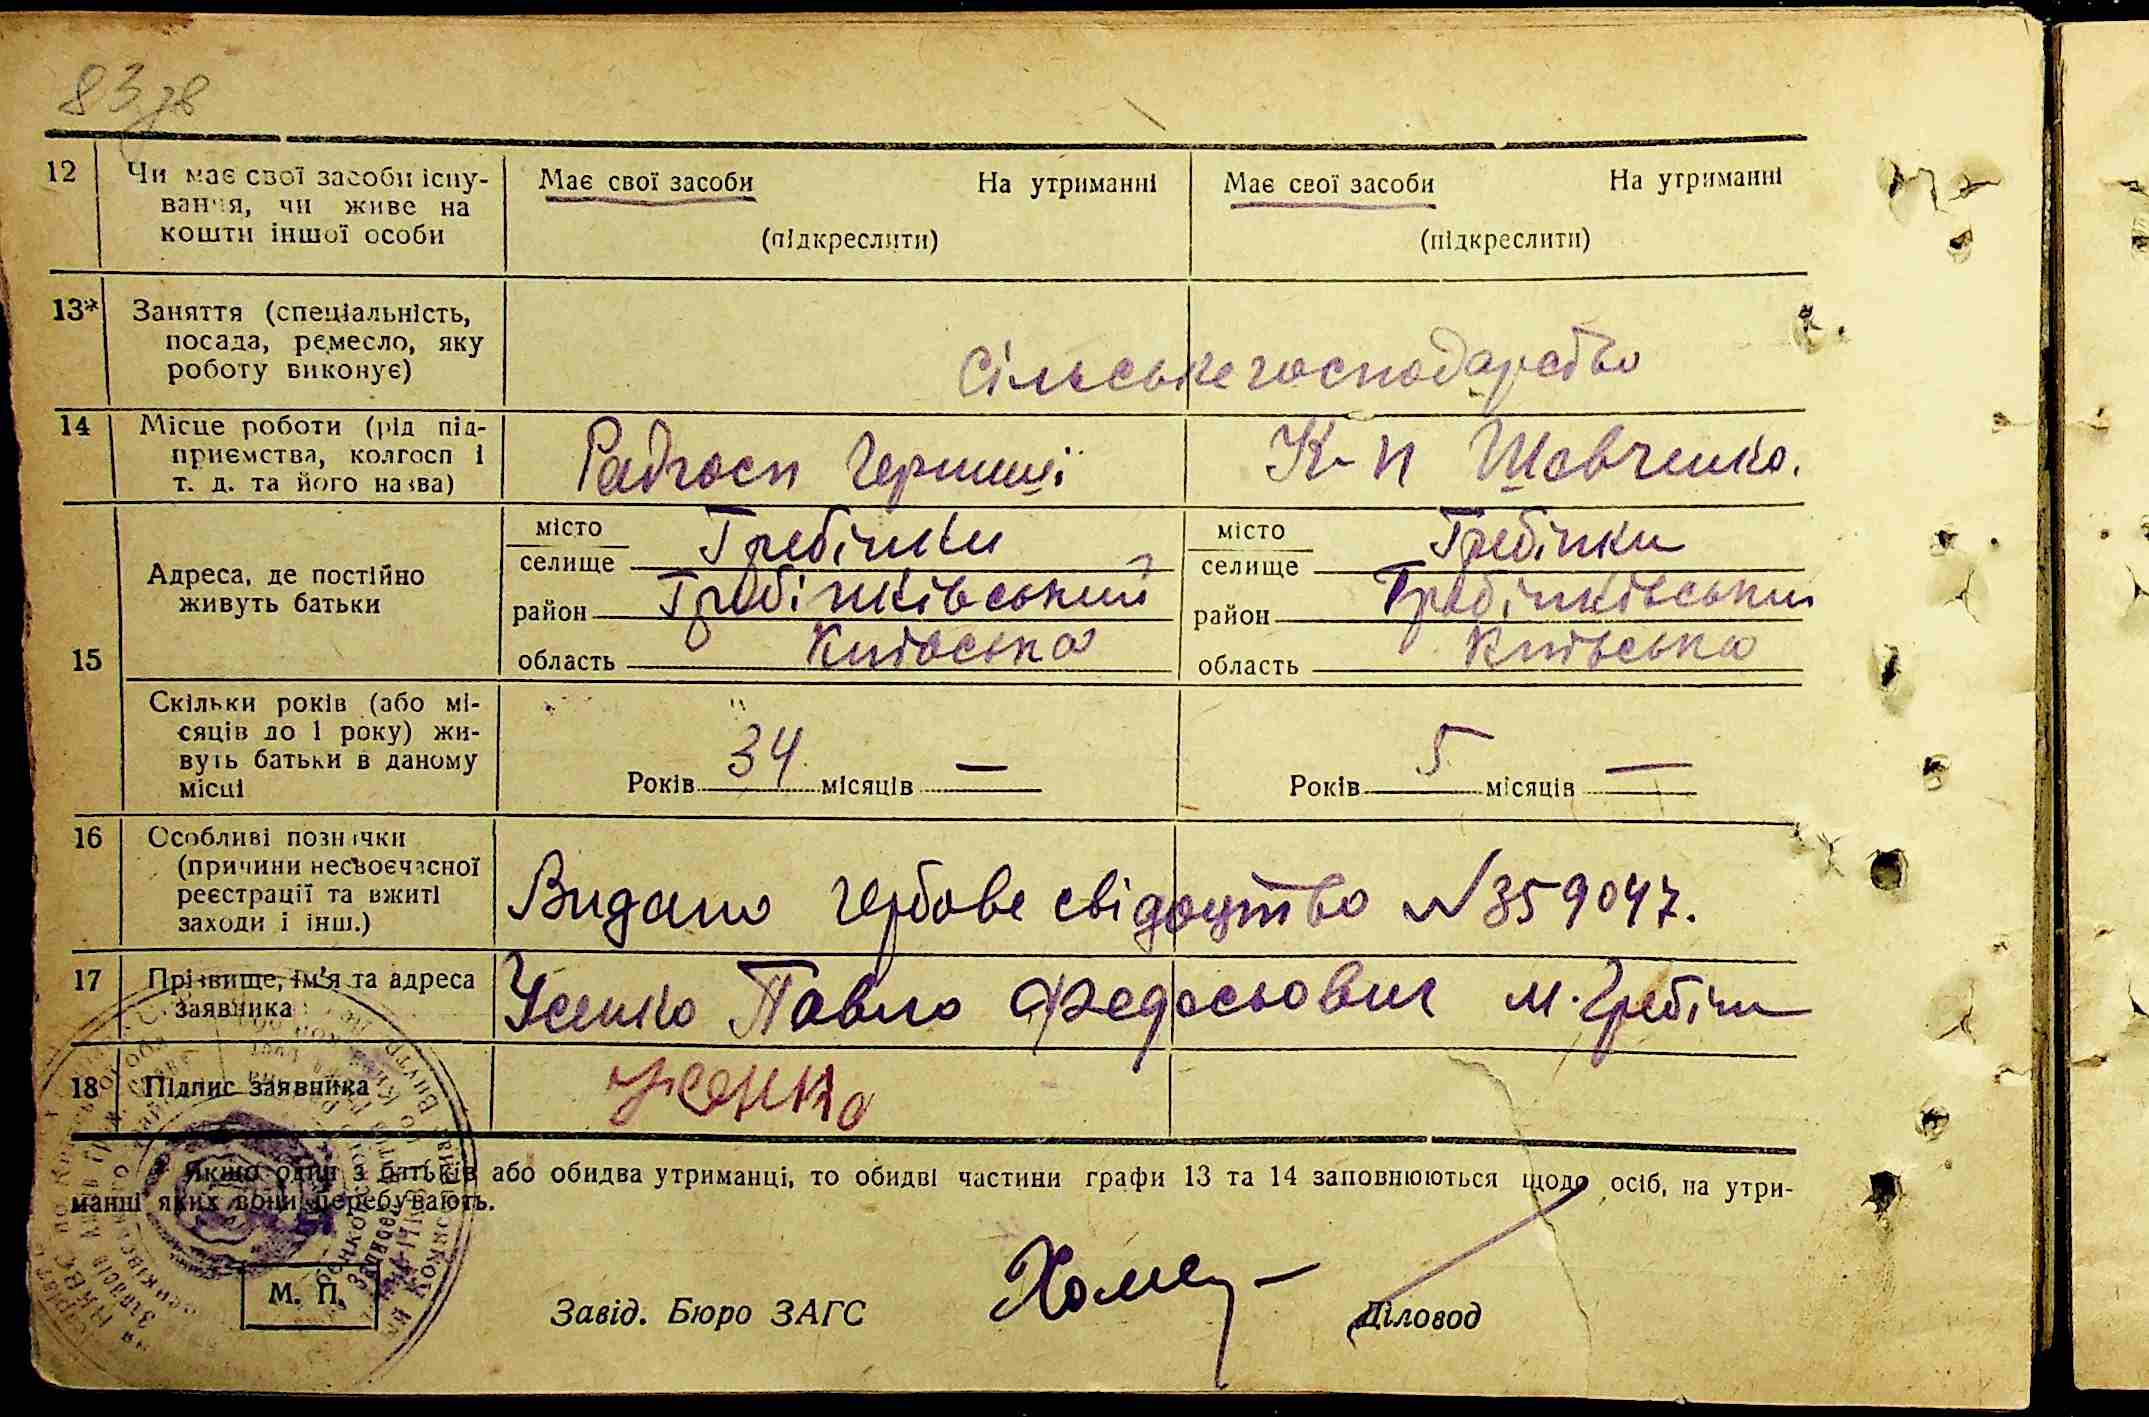 83 зв
12 Чи має свої засоби існу- Має свої засоби На утриманні Має свої засоби На утриманні
вання, чи живе на
кошти іншої особи (підкреслити) (підкреслити)
13* Заняття (спеціальність,
посада, ремесло, яку
роботу виконує) Сільське господарство
14 Місце роботи (рід під-
приємства, колгосп і Радгосп К-п Шевченко.
т. д. та його назва)
місто Гребінки місто Гребінки
селище селище
Адреса, де постійно
живуть батьки район Гребінківський район Гребінківський
15 область Київська область Київська
Скільки років (або мі-
сяців до 1 року) жи-
вуть батьки в даному
місці Років 34 місяців — Років 5 місяців —
16 Особливі позначки
(причини несвоєчасної
реєстрації та вжиті Видано гербове свідоцтво №359047.
заходи і інш.)
17 Прізвище, ім'я та адреса Усенко Павло Федосьович м. Гребінк
заявника
18 Підпис заявника Усенко
Якщо один з батьків або обидва утриманці, то обидві частини графи 13 та 14 заповнюються щодо осіб, на утри-
манні яких вони перебувають.
М. П.
Завід. Бюро ЗАГС Діловод